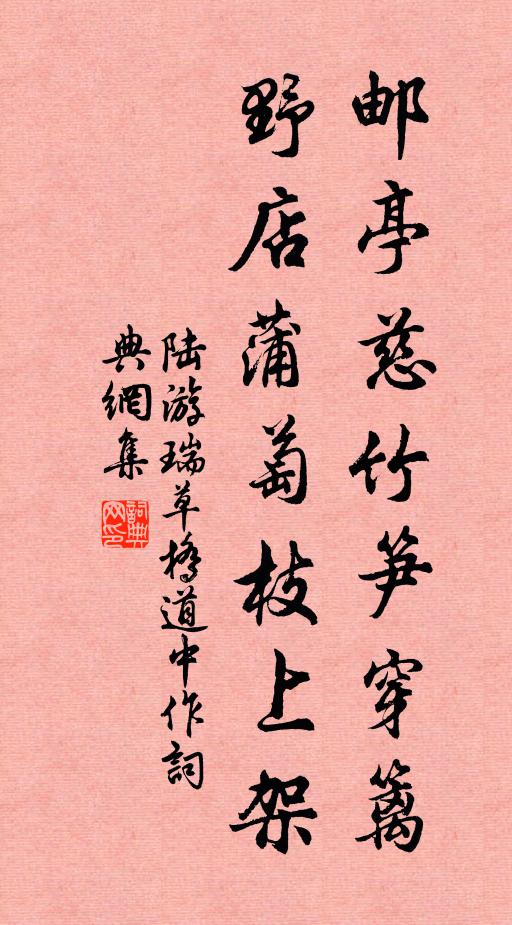 邮亭慈竹笋穿篱
野店蒲萄枝上架
陆游瑞草橋道中作詞
典網集
詞典网印